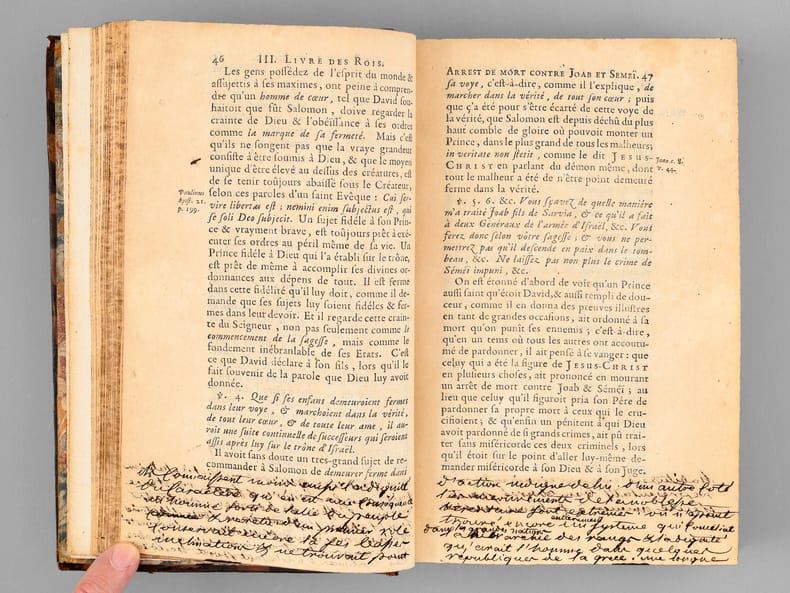 46 III. LIVRE DES ROIS.
Les gens possédez de l'esprit du monde &
assujettis à ses maximes, ont peine à compren-
dre qu'un homme de cœur, tel que David sou-
haitoit que fût Salomon, doive regarder la
crainte de Dieu & l'obéïssance à ses ordres
comme la marque de sa fermeté. Mais c'est
qu'ils ne songent pas que la vraye grandeur
consiste à être soumis à Dieu, & que le moyen
unique d'être élevé au dessus des créatures, est
de se tenir toujours abaissé sous le Créateur,
selon ces paroles d'un saint Evêque: Cui ser-
vire libertas est; nemini enim subjectus est, qui
se soli Deo subjecit. Un sujet fidéle à son Prin-
ce & vrayment brave, est toujours prêt à exé-
cuter ses ordres au péril même de sa vie. Un
Prince fidéle à Dieu qui l'a établi sur le trône,
est prêt de même à accomplir ses divines or-
donnances aux dépens de tout. Il est ferme
dans cette fidélité qu'il luy doit, comme il de-
mande que ses sujets luy soient fidéles & fer-
mes dans leur devoir. Et il regarde cette crain-
te du Seigneur, non pas seulement comme le
commencement de la sagesse, mais comme le
fondement inébranlable de ses Etats. C'est
ce que David déclare à son fils, lors qu'il le
fait souvenir de la parole que Dieu luy avoit
donnée.
℣. 4. Que si ses enfans demeuroient fermes
dans leur voye, & marchoient dans la vérité,
de tout leur cœur, & de toute leur ame, il au-
roit une suite continuelle de successeurs qui seroient
assis après luy sur le trône d'Israël.
Il avoit sans doute un tres-grand sujet de re-
commander à Salomon de demeurer ferme dans
Paulinus
Epist. 21.
p. 199.
ARREST DE MORT CONTRE JOAB ET SEMEÏ. 47
sa voye, c'est-à-dire, comme il l'explique, de
marcher dans la vérité, de tout son cœur; puis
que ç'a été pour s'être écarté de cette voye de
la vérité, que Salomon est depuis déchû du plus
haut comble de gloire où pouvoit monter un
Prince, dans le plus grand de tous les malheurs;
in veritate non stetit, comme le dit JESUS-
CHRIST en parlant du démon même, dont
tout le malheur a été de n'être point demeuré
ferme dans la vérité.
℣. 5. 6. &c. Vous sçavez de quelle maniére
m'a traité Joab fils de Sarvia, & ce qu'il a fait
à deux Généraux de l'armée d'Israël, &c. Vous
ferez donc selon vôtre sagesse; & vous ne per-
mettrez pas qu'il descende en paix dans le tom-
beau, &c. Ne laissez pas non plus le crime de
Séméi impuni, &c.
On est étonné d'abord de voir qu'un Prince
aussi saint qu'étoit David, & aussi rempli de dou-
ceur, comme il en donna des preuves illustres
en tant de grandes occasions, ait ordonné à sa
mort qu'on punît ses ennemis; c'est-à-dire,
qu'en un tems où tous les autres ont accoutu-
mé de pardonner, il ait pensé à se vanger: que
celuy qui a été la figure de JESUS-CHRIST
en plusieurs choses, ait prononcé en mourant
un arrêt de mort contre Joab & Séméi; au
lieu que celuy qu'il figuroit pria son Pére de
pardonner sa propre mort à ceux qui le cru-
cifioient; & qu'enfin un pénitent à qui Dieu
avoit pardonné de si grands crimes, ait pû trai-
ter sans miséricorde ces deux criminels, lors
qu'il étoit sur le point d'aller luy-même de-
mander miséricorde à son Dieu & à son Juge.
Joan c. 8.
v. 44.
inclinations & ne trouvait point
d'action indigne de lui. d'un autre coté
un systeme qui
hierarchie des rangs & la dignité
qu'avait l'homme dans quelques
republiques de la grece. une longue